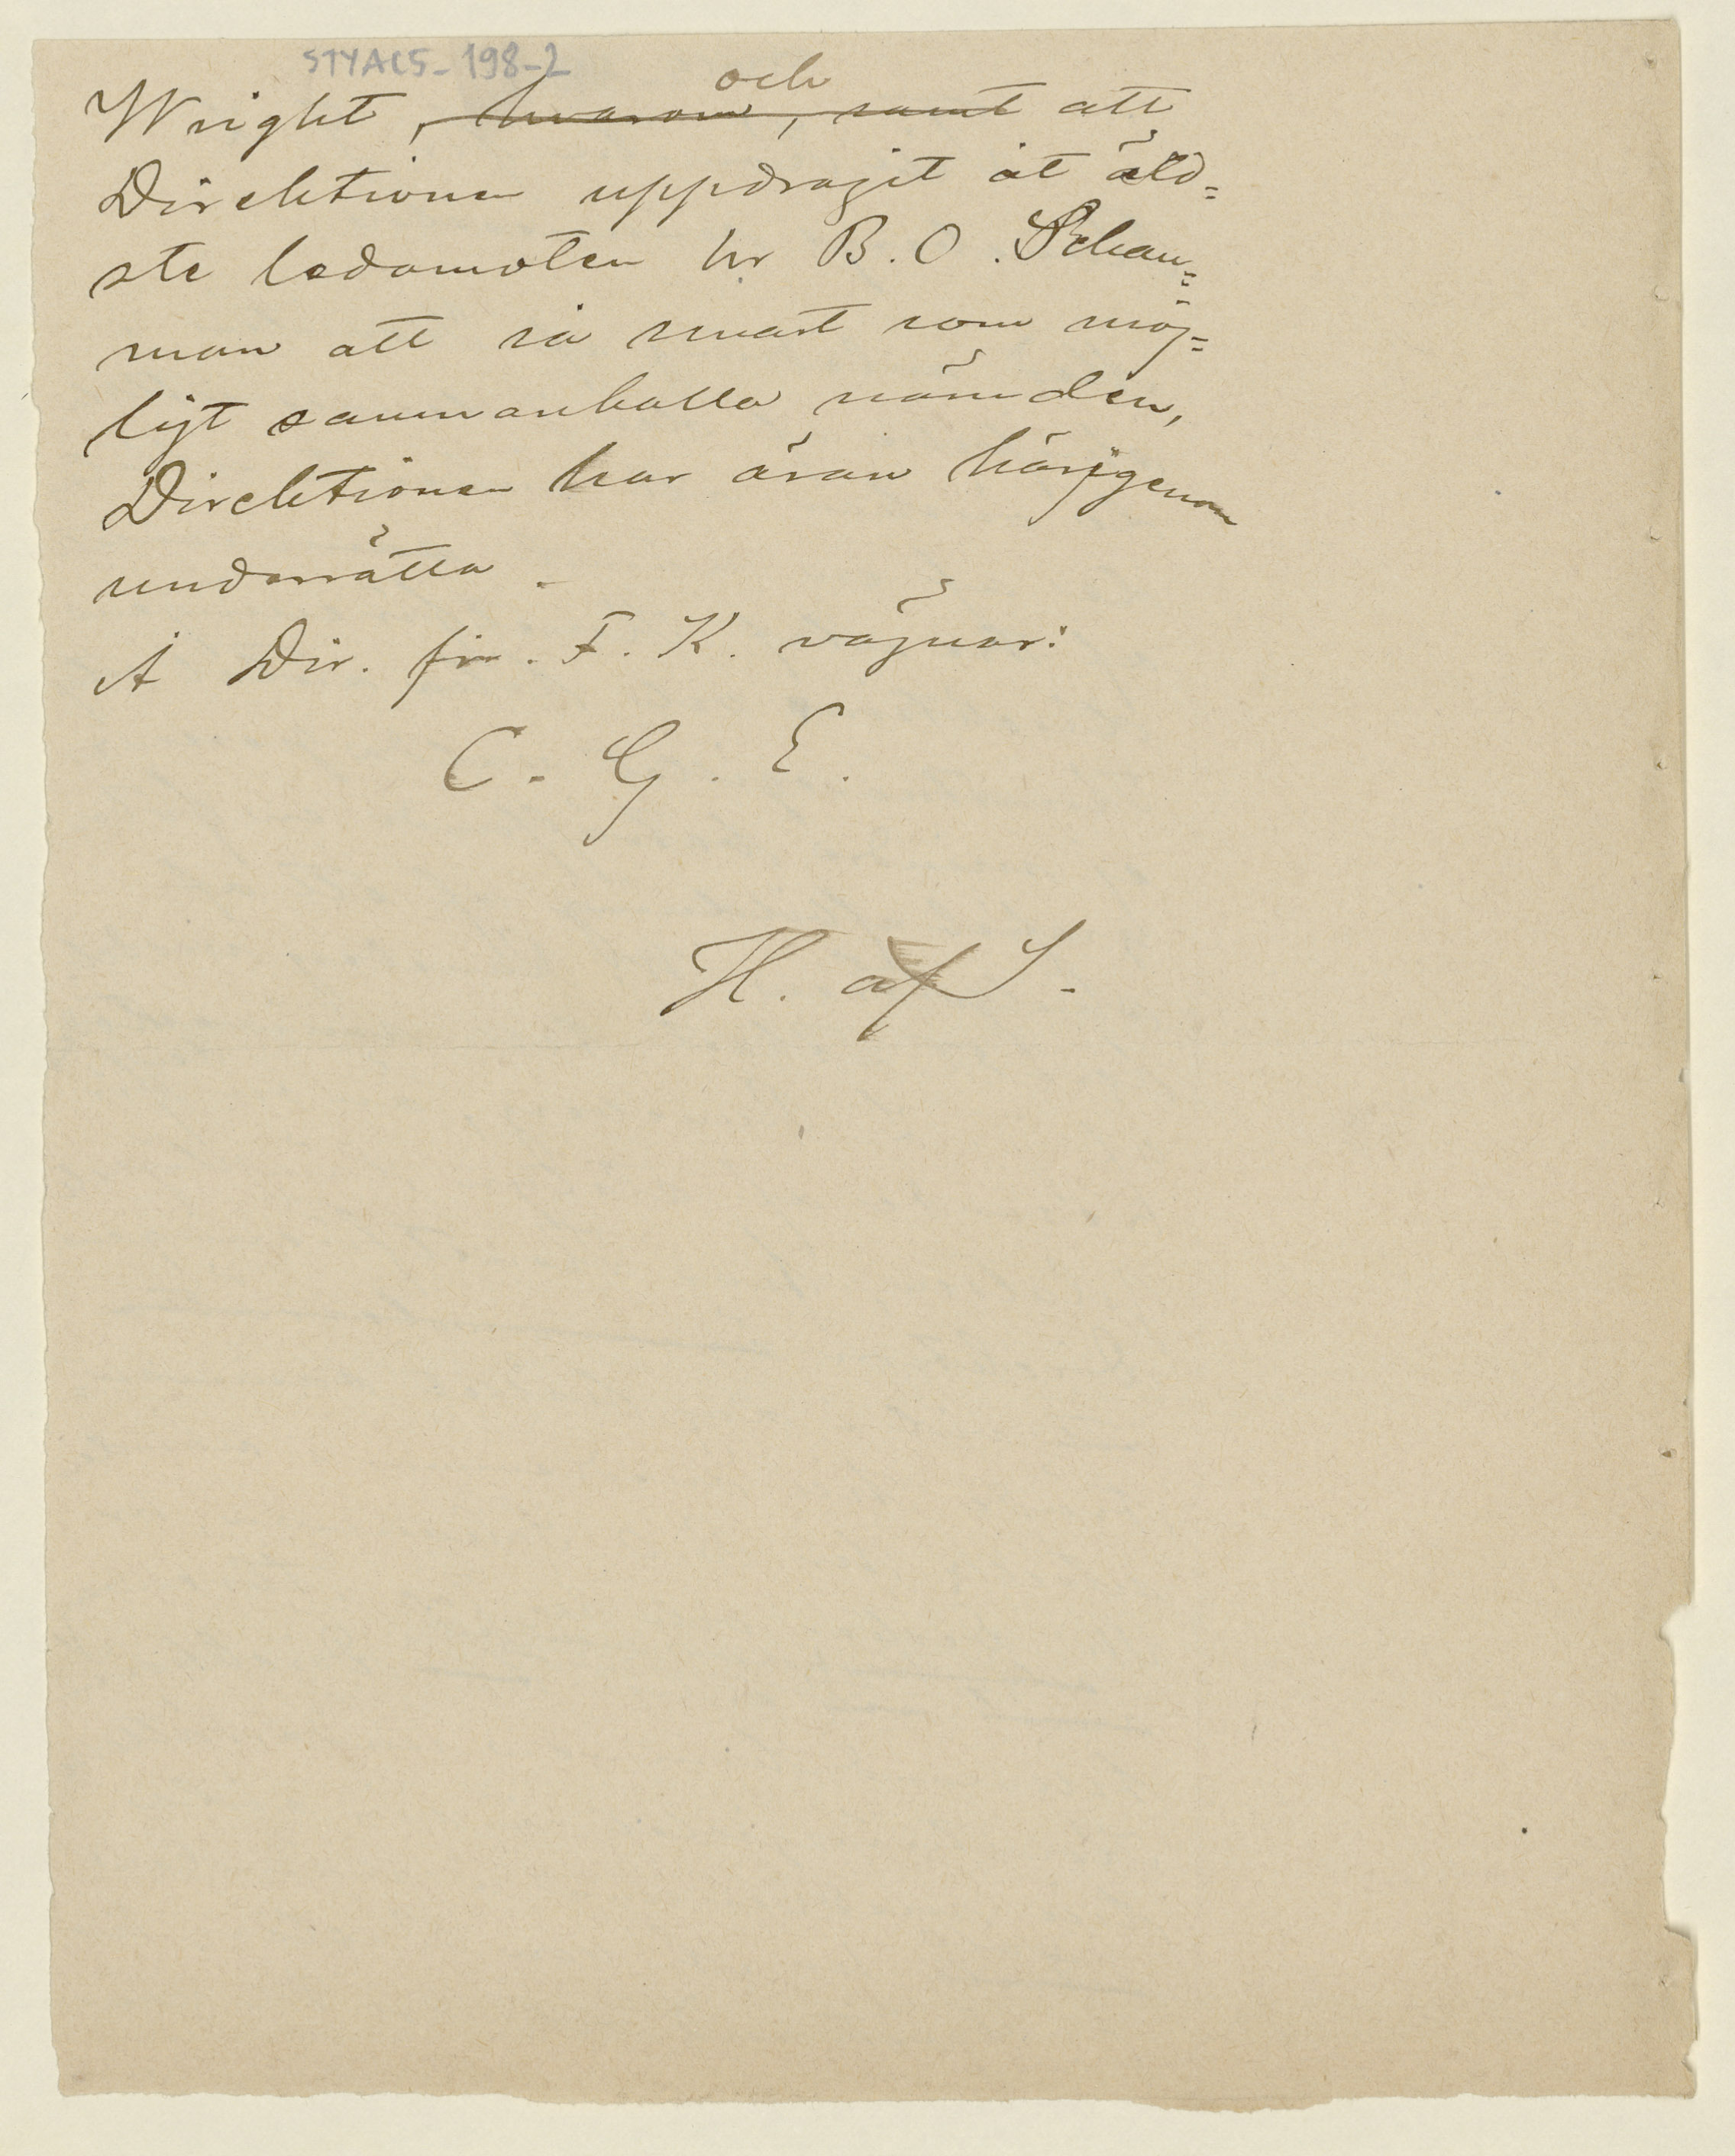 STYACS-198-2
och
Wright, hvarom, samt att
Direktionen uppdragit åt äld=
ste ledamoten hr B. O. Schau=
man att så snart som möj=
ligt sammankalla nämnden,
Direktionen har äran härigenom
underrätta.
Å Dir. för. F. K. vägnar:
C. G. E.
H. af S.